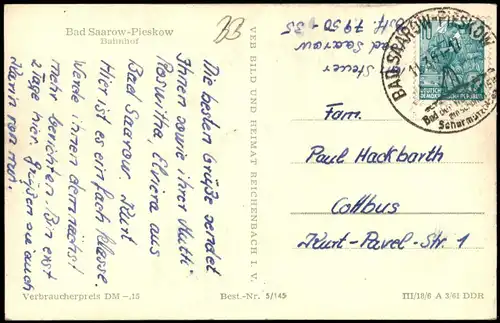 Bad Saarow-Pieskow
Bahnhof
Die besten Grüße sendet
Ihnen sowie ihrer Mutti
Roswitha, Elvira aus
Bad Saarow. Kurt
Hier ist es einfach klasse.
Werde ihnen demnächst
Mehr berichten. Bin erst
2 Tage hier. Grüßen sie auch
Karin von mir.
Verbraucherpreis DM -,15
Best.-Nr. 5/145
VEB BILD UND HEIMAT REICHENBACH I. V.
Steuer
Bad Saarow
79 50 - 35
BAD SAARow-PIESKOW
Bad
Fam.
Paul Hackbarth
Cottbus
Kurt-Pavel-Str. 1
III/18/6 A 3/61 DDR